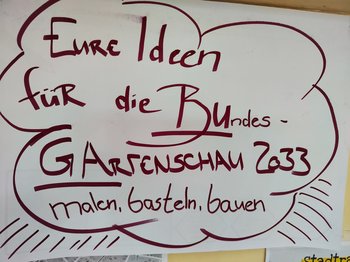 Eure Ideen
für die Bundes-
Gartenschau 2033
malen, basteln, bauen
stadtra